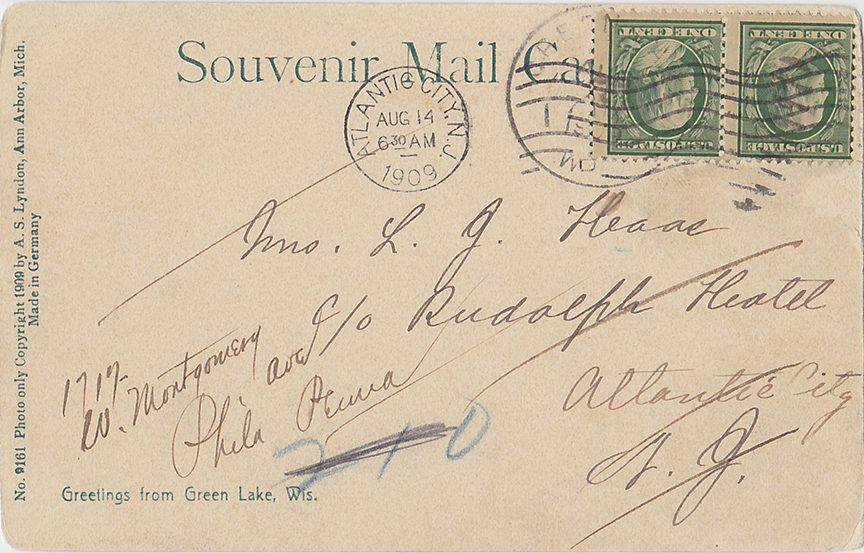 Souvenir Mail Ca
ATLANTIC CITY, N.J.
AUG 14
6 30 AM
1909
ONE CENT
U.S. POSTAGE
ONE CENT
U.S. POSTAGE
Mrs. L. J. Heaas
c/o Rudolph Heotel
Atlantic City
N. J.
1717
W. Montgomery
ave
Phila Penna
210
Greetings from Green Lake, Wis.
No. 9161 Photo only Copyright 1909 by A. S. Lyndon, Ann Arbor, Mich.
Made in Germany